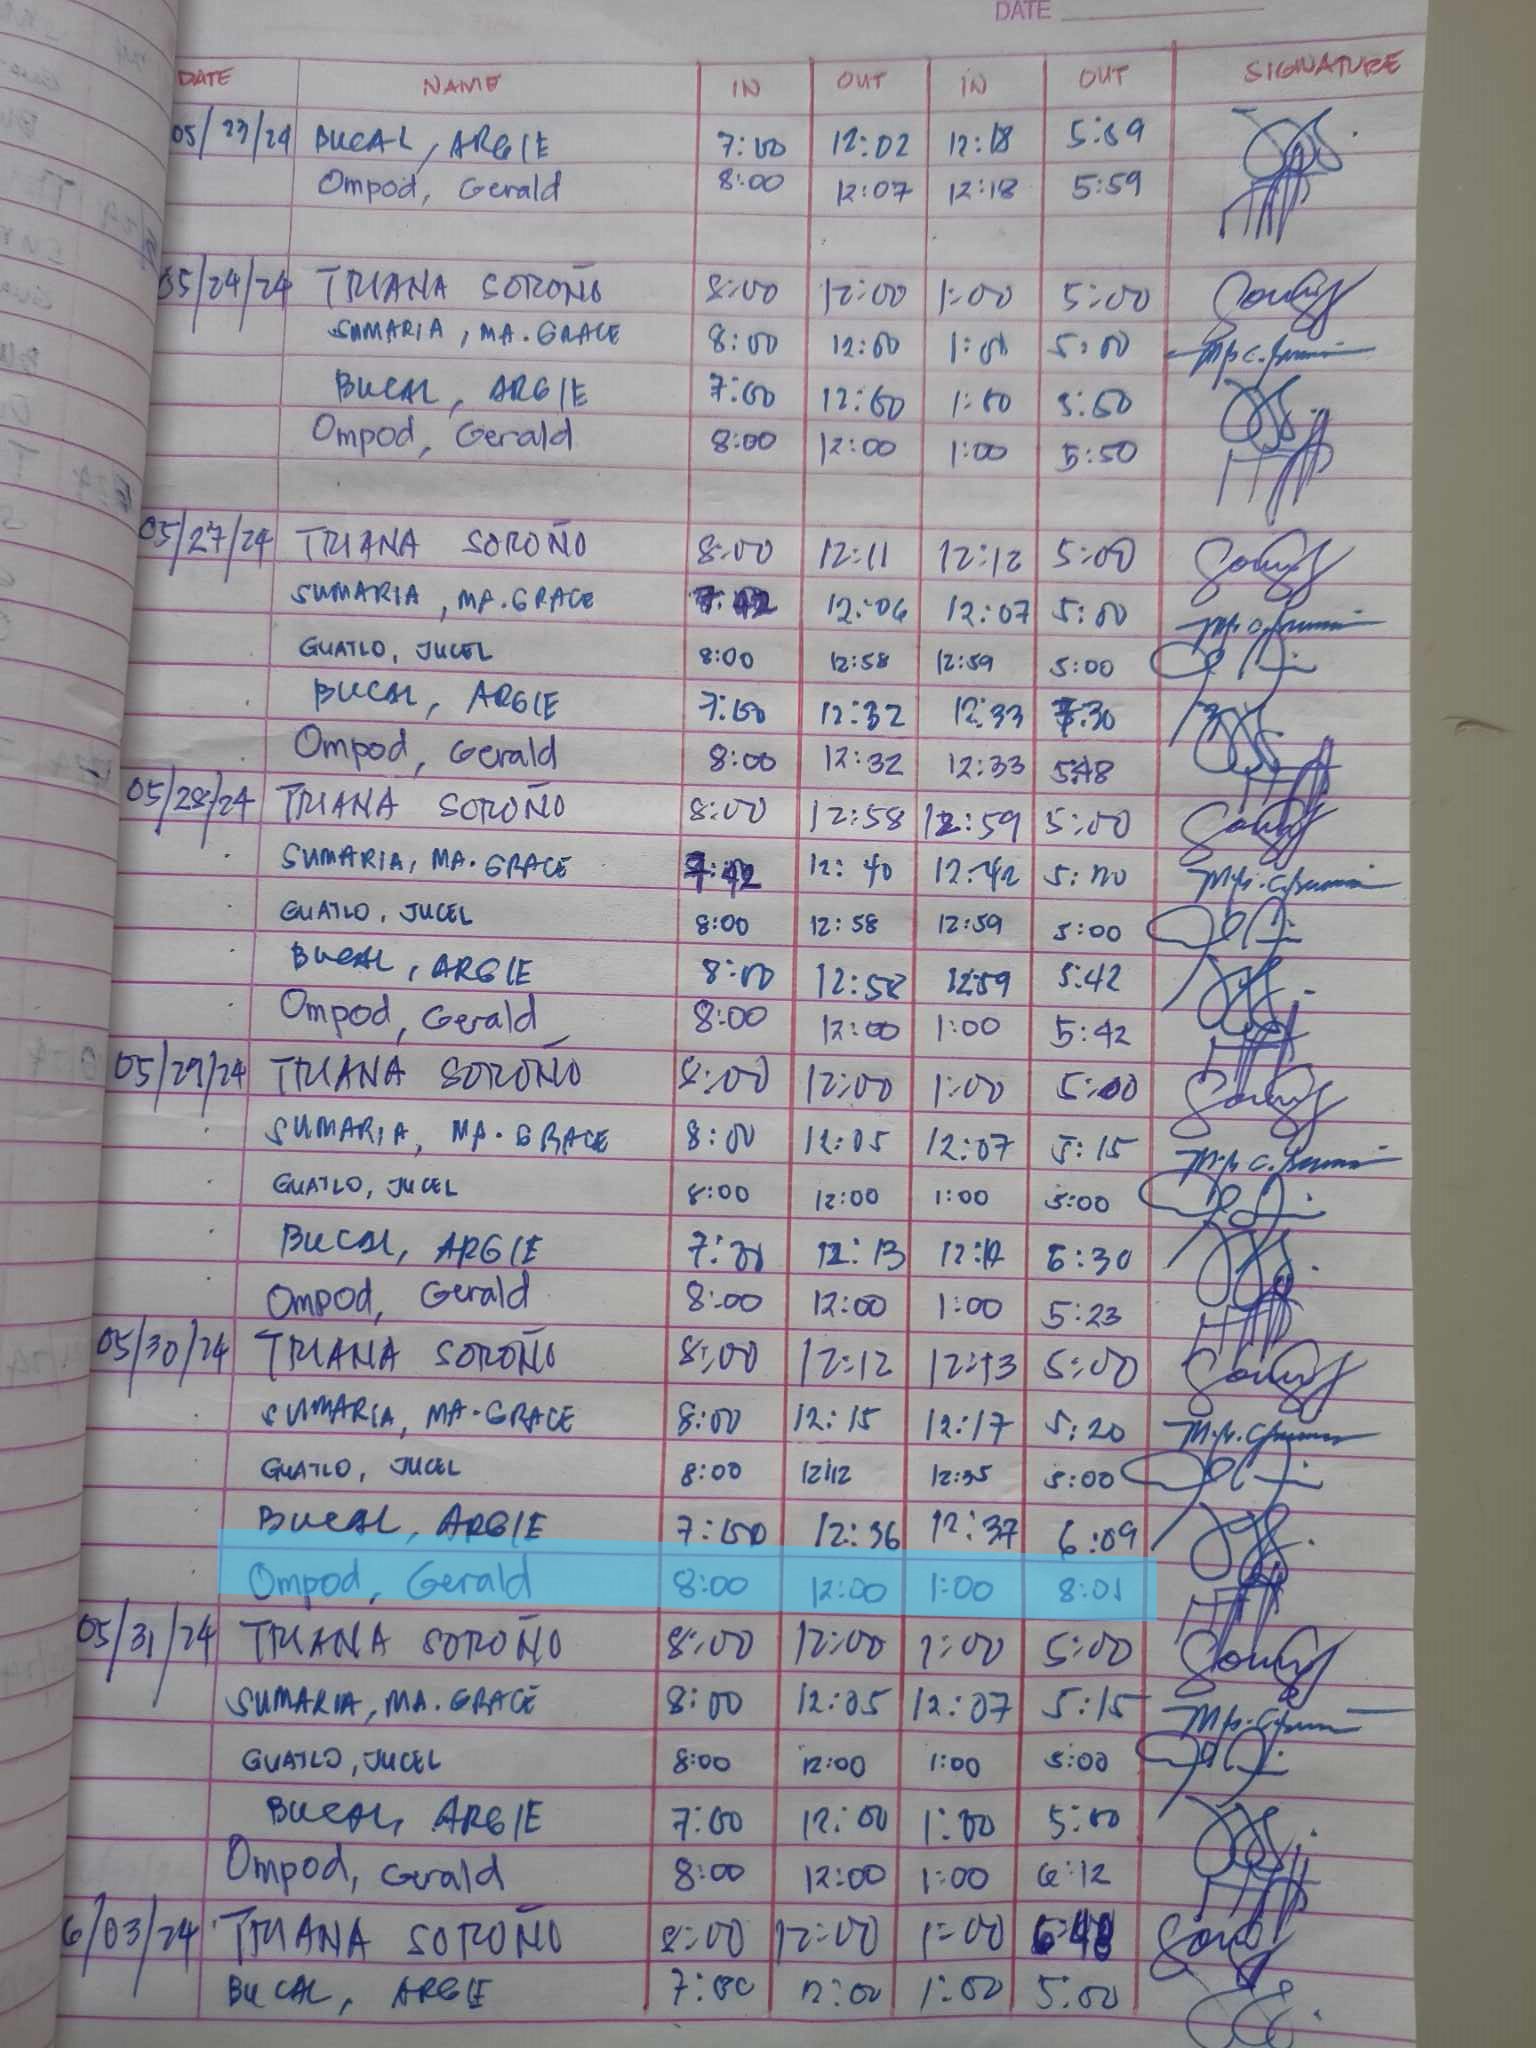 DATE
DATE NAME IN OUT IN OUT SIGNATURE
05/23/24 BUCAL, ARGIE 7:00 12:02 12:18 5:59
Ompod, Gerald 8:00 12:07 12:18 5:59
05/24/24 TRIANA SOROÑO 8:00 12:00 1:00 5:00
SUMARIA, MA. GRACE 8:00 12:00 1:00 5:00
BUCAL, ARGIE 7:00 12:00 1:00 5:50
Ompod, Gerald 8:00 12:00 1:00 5:50
05/27/24 TRIANA SOROÑO 8:00 12:11 12:12 5:00
SUMARIA, MA. GRACE 7:42 12:06 12:07 5:00
GUATLO, JUCEL 8:00 12:58 12:59 5:00
BUCAL, ARGIE 7:00 12:32 12:33 :30
Ompod, Gerald 8:00 12:32 12:33 5:48
05/28/24 TRIANA SOROÑO 8:00 12:58 12:59 5:00
SUMARIA, MA. GRACE 7:42 12:40 12:42 5:00
GUATLO, JUCEL 8:00 12:58 12:59 5:00
BUCAL, ARGIE 8:00 12:58 12:59 5:42
Ompod, Gerald 8:00 12:00 1:00 5:42
05/29/24 TRIANA SOROÑO 8:00 12:00 1:00 5:00
SUMARIA, MA. GRACE 8:00 12:05 12:07 5:15
GUATLO, JUCEL 8:00 12:00 1:00 5:00
BUCAL, ARGIE 12:13 6:30
Ompod, Gerald 8:00 12:00 1:00 5:23
05/30/24 TRIANA SOROÑO 8:00 12:12 12:13 5:00
SUMARIA, MA. GRACE 8:00 12:15 12:17 5:20
GUATLO, JUCEL 8:00 12:12 12:35 5:00
BUCAL, ARGIE 7:00 12:36 12:37 6:09
Ompod, Gerald 8:00 12:00 1:00 8:01
05/31/24 TRIANA SOROÑO 8:00 12:00 1:00 5:00
SUMARIA, MA. GRACE 8:00 12:05 12:07 5:15
GUATLO, JUCEL 8:00 12:00 1:00 5:00
BUCAL, ARGIE 7:00 12:00 1:00 5:00
Ompod, Gerald 8:00 12:00 1:00 6:12
6/03/24 TRIANA SOROÑO 8:00 12:00 1:00 6:48
BUCAL, ARGIE 7:00 12:00 1:00 5:00